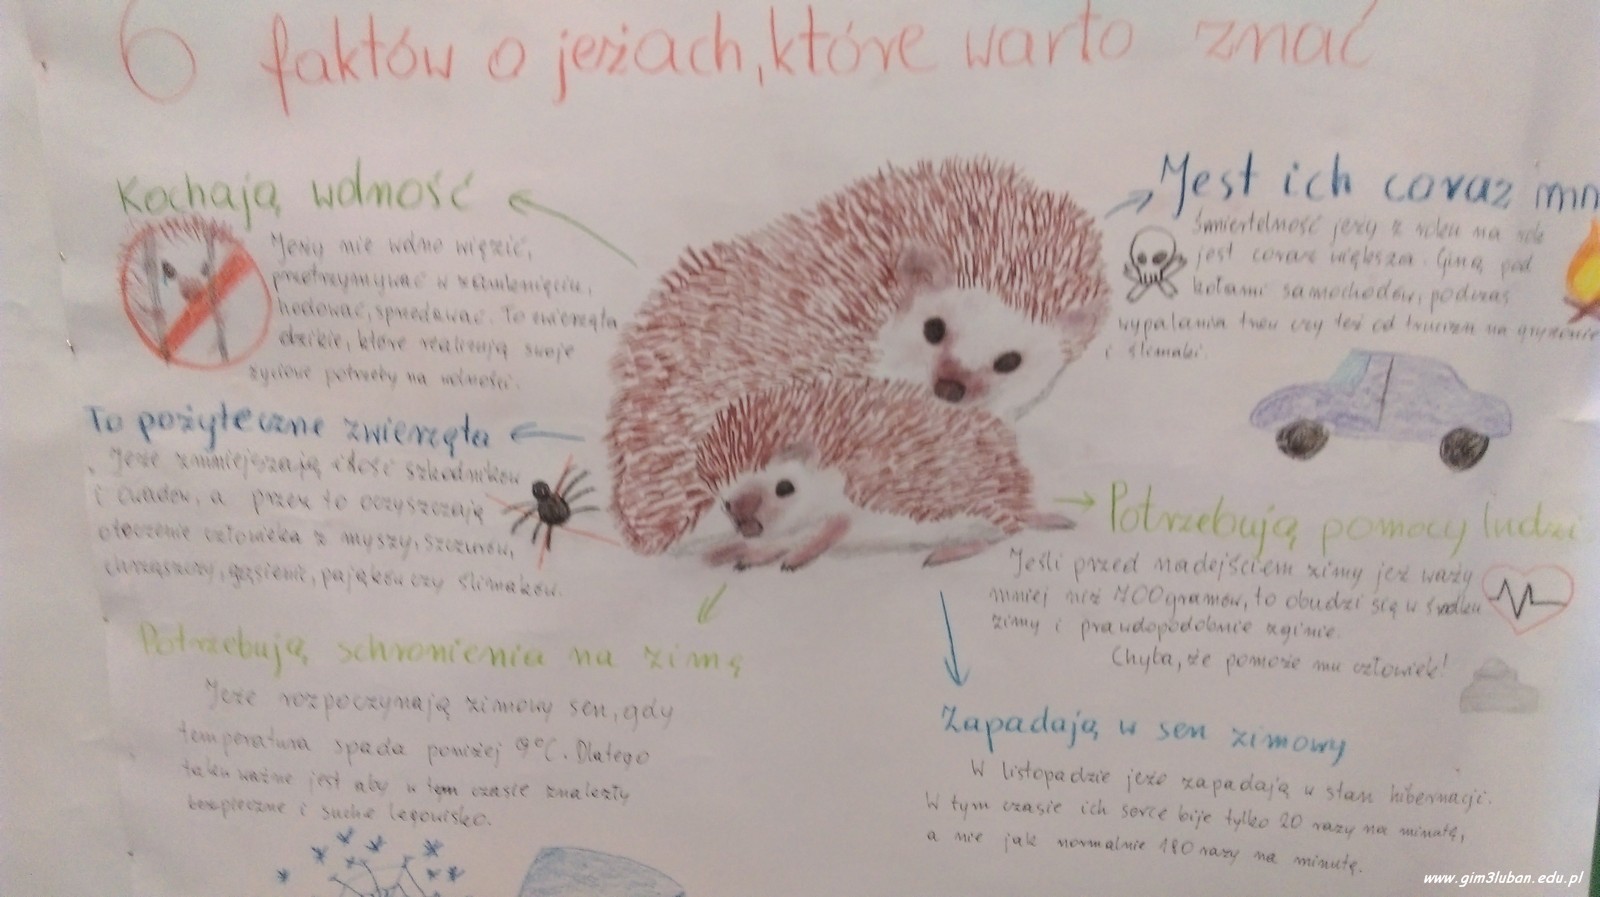 6 faktów o jeżach, które warto znać
Kochają wolność
Jeży nie wolno więzić,
przetrzymywać w zamknięciu,
hodować, sprzedawać. To zwierzęta
dzikie, które realizują swoje
życiowe potrzeby na wolności.
To pożyteczne zwierzęta
Jeże zmniejszają ilość szkodników
i owadów, a przez to oczyszczają
otoczenie człowieka z myszy, szczurów,
chrząszczy, gąsienic, pająków czy ślimaków.
Potrzebują schronienia na zimę
Jeże rozpoczynają zimowy sen, gdy
temperatura spada poniżej 9°C. Dlatego
tak ważne jest aby w tym czasie znalazły
bezpieczne i suche legowisko.
Jest ich coraz mn
Śmiertelność jeży z roku na rok
jest coraz większa. Giną pod
kołami samochodów, podczas
wypalania traw czy też od trucizn na gryzonie
i ślimaki.
Potrzebują pomocy ludzi
Jeśli przed nadejściem zimy jeż waży
mniej niż 700 gramów, to obudzi się w środku
zimy i prawdopodobnie zginie.
Chyba, że pomoże mu człowiek!
Zapadają w sen zimowy
W listopadzie jeże zapadają w stan hibernacji.
W tym czasie ich serce bije tylko 20 razy na minutę,
a nie jak normalnie 180 razy na minutę.
www.gim3luban.edu.pl